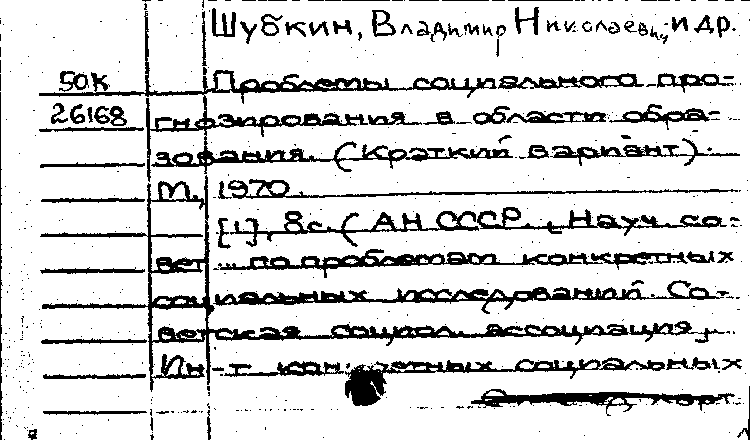 Шубкин, Владимир Николаевич и др.
50к Проблемы социального про-
26168 гнозирования в области обра-
зования. (Краткий вариант).
М., 1970.
[1], 8с. (АН СССР. Науч. со-
вет ... по проблемам конкретных
социальных исследований. Со-
ветская социол. ассоциация,
Ин-т конкретных социальных
карт